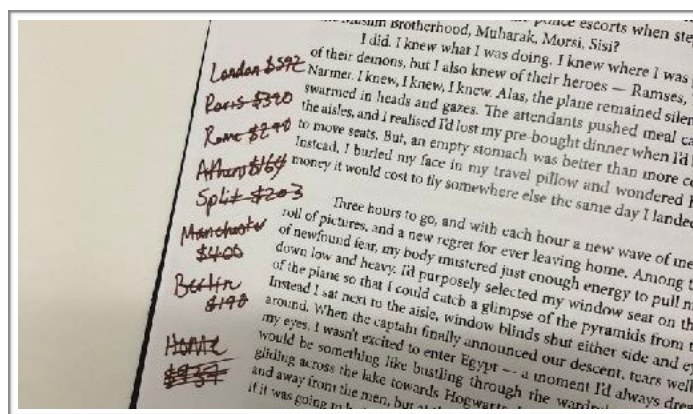 police escorts when
Muslim Brotherhood, Mubarak, Morsi, Sisi?
I did. I knew what I was doing. I knew where I was
of their demons, but I also knew of their heroes — Ramses,
Narmer. I knew, I knew, I knew. Alas, the plane remained
swarmed in heads and gazes. The attendants pushed meal
the aisles, and I realised I'd lost my pre-bought dinner when I'd
to move seats. But, an empty stomach was better than more
Instead, I buried my face in my travel pillow and wondered
money it would cost to fly somewhere else the same day I landed
London $592
Paris $390
Rome $290
Athens $164
Split $203
Manchester
$400
Berlin
$190
Home
$937
Three hours to go, and with each hour a new wave of
roll of pictures, and a new regret for ever leaving home. Among
of newfound fear, my body mustered just enough energy to pull
down low and heavy. I'd purposely selected my window seat on
of the plane so that I could catch a glimpse of the pyramids from
Instead I sat next to the aisle, window blinds shut either side and
around. When the captain finally announced our descent, tears
my eyes. I wasn't excited to enter Egypt — a moment I'd always
would be something like bustling through the
gliding across the lake towards
and away from the men, but
if it was going to